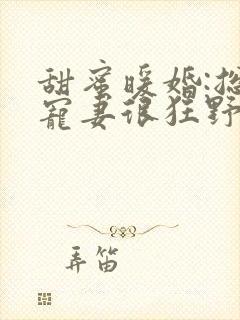 甜蜜暖婚:总
宠妻很狂野
弄笛